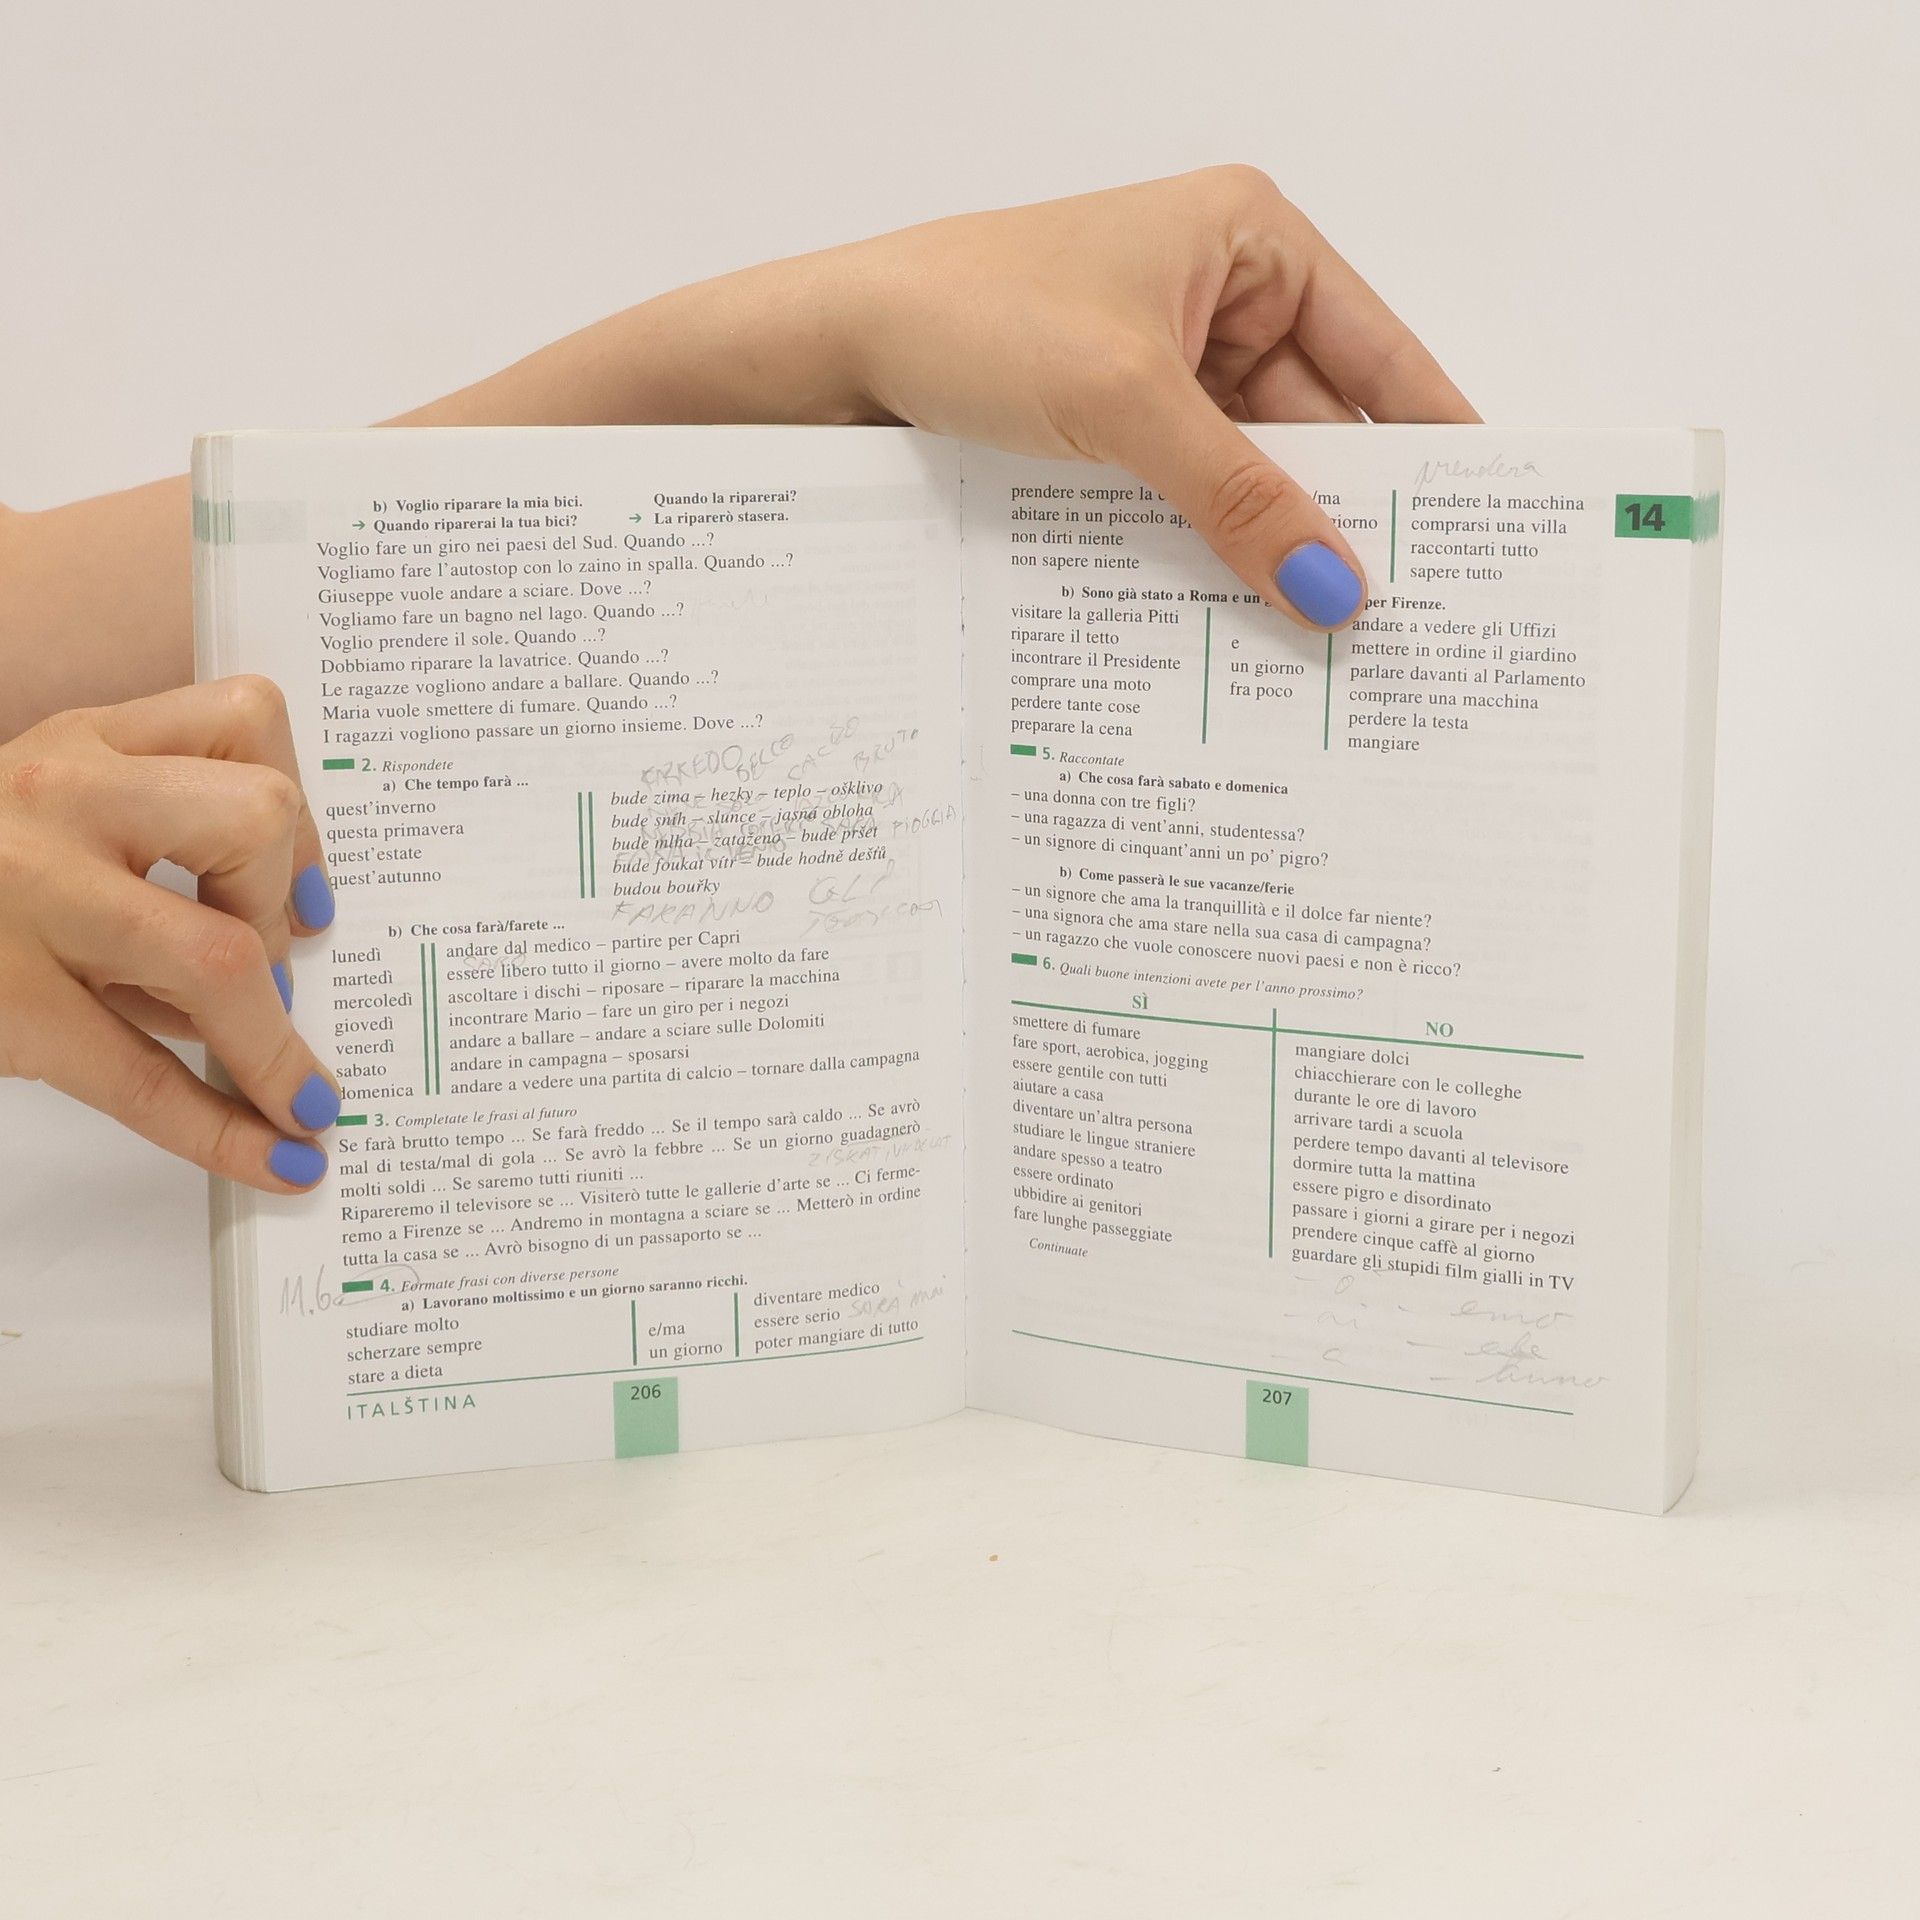 b) Voglio riparare la mia bici. Quando la riparerai?
→ Quando riparerai la tua bici? → La riparerò stasera.
Voglio fare un giro nei paesi del Sud. Quando ...?
Vogliamo fare l'autostop con lo zaino in spalla. Quando ...?
Giuseppe vuole andare a sciare. Dove ...?
Vogliamo fare un bagno nel lago. Quando ...?
Voglio prendere il sole. Quando ...?
Dobbiamo riparare la lavatrice. Quando ...?
Le ragazze vogliono andare a ballare. Quando ...?
Maria vuole smettere di fumare. Quando ...?
I ragazzi vogliono passare un giorno insieme. Dove ...?
2. Rispondete
a) Che tempo farà ...
quest'inverno
questa primavera
quest'estate
quest'autunno
bude zima – hezky – teplo – ošklivo
bude sníh – slunce – jasná obloha
bude mlha – zataženo – bude pršet
bude foukat vítr – bude hodně dešťů
budou bouřky
FARANNO
b) Che cosa farà/farete ...
lunedì
martedì
mercoledì
giovedì
venerdì
sabato
domenica
andare dal medico – partire per Capri
essere libero tutto il giorno – avere molto da fare
ascoltare i dischi – riposare – riparare la macchina
incontrare Mario – fare un giro per i negozi
andare a ballare – andare a sciare sulle Dolomiti
andare in campagna – sposarsi
andare a vedere una partita di calcio – tornare dalla campagna
3. Completate le frasi al futuro
Se farà brutto tempo ... Se farà freddo ... Se il tempo sarà caldo ... Se avrò
mal di testa/mal di gola ... Se avrò la febbre ... Se un giorno guadagnerò
molti soldi ... Se saremo tutti riuniti ...
Ripareremo il televisore se ... Visiterò tutte le gallerie d'arte se ... Ci ferme-
remo a Firenze se ... Andremo in montagna a sciare se ... Metterò in ordine
tutta la casa se ... Avrò bisogno di un passaporto se ...
11.6
4. Formate frasi con diverse persone
a) Lavorano moltissimo e un giorno saranno ricchi.
studiare molto
scherzare sempre
stare a dieta
e/ma
un giorno
diventare medico
essere serio SARÀ
poter mangiare di tutto
ITALŠTINA
206
prenderà
prendere sempre la
abitare in un piccolo
non dirti niente
non sapere niente
/ma
giorno
prendere la macchina
comprarsi una villa
raccontarti tutto
sapere tutto
14
b) Sono già stato a Roma e un per Firenze.
visitare la galleria Pitti
riparare il tetto
incontrare il Presidente
comprare una moto
perdere tante cose
preparare la cena
e
un giorno
fra poco
andare a vedere gli Uffizi
mettere in ordine il giardino
parlare davanti al Parlamento
comprare una macchina
perdere la testa
mangiare
5. Raccontate
a) Che cosa farà sabato e domenica
– una donna con tre figli?
– una ragazza di vent'anni, studentessa?
– un signore di cinquant'anni un po' pigro?
b) Come passerà le sue vacanze/ferie
– un signore che ama la tranquillità e il dolce far niente?
– una signora che ama stare nella sua casa di campagna?
– un ragazzo che vuole conoscere nuovi paesi e non è ricco?
6. Quali buone intenzioni avete per l'anno prossimo?
SÌ
smettere di fumare
fare sport, aerobica, jogging
essere gentile con tutti
aiutare a casa
diventare un'altra persona
studiare le lingue straniere
andare spesso a teatro
essere ordinato
ubbidire ai genitori
fare lunghe passeggiate
Continuate
NO
mangiare dolci
chiacchierare con le colleghe
durante le ore di lavoro
arrivare tardi a scuola
perdere tempo davanti al televisore
dormire tutta la mattina
essere pigro e disordinato
passare i giorni a girare per i negozi
prendere cinque caffè al giorno
guardare gli stupidi film gialli in TV
207